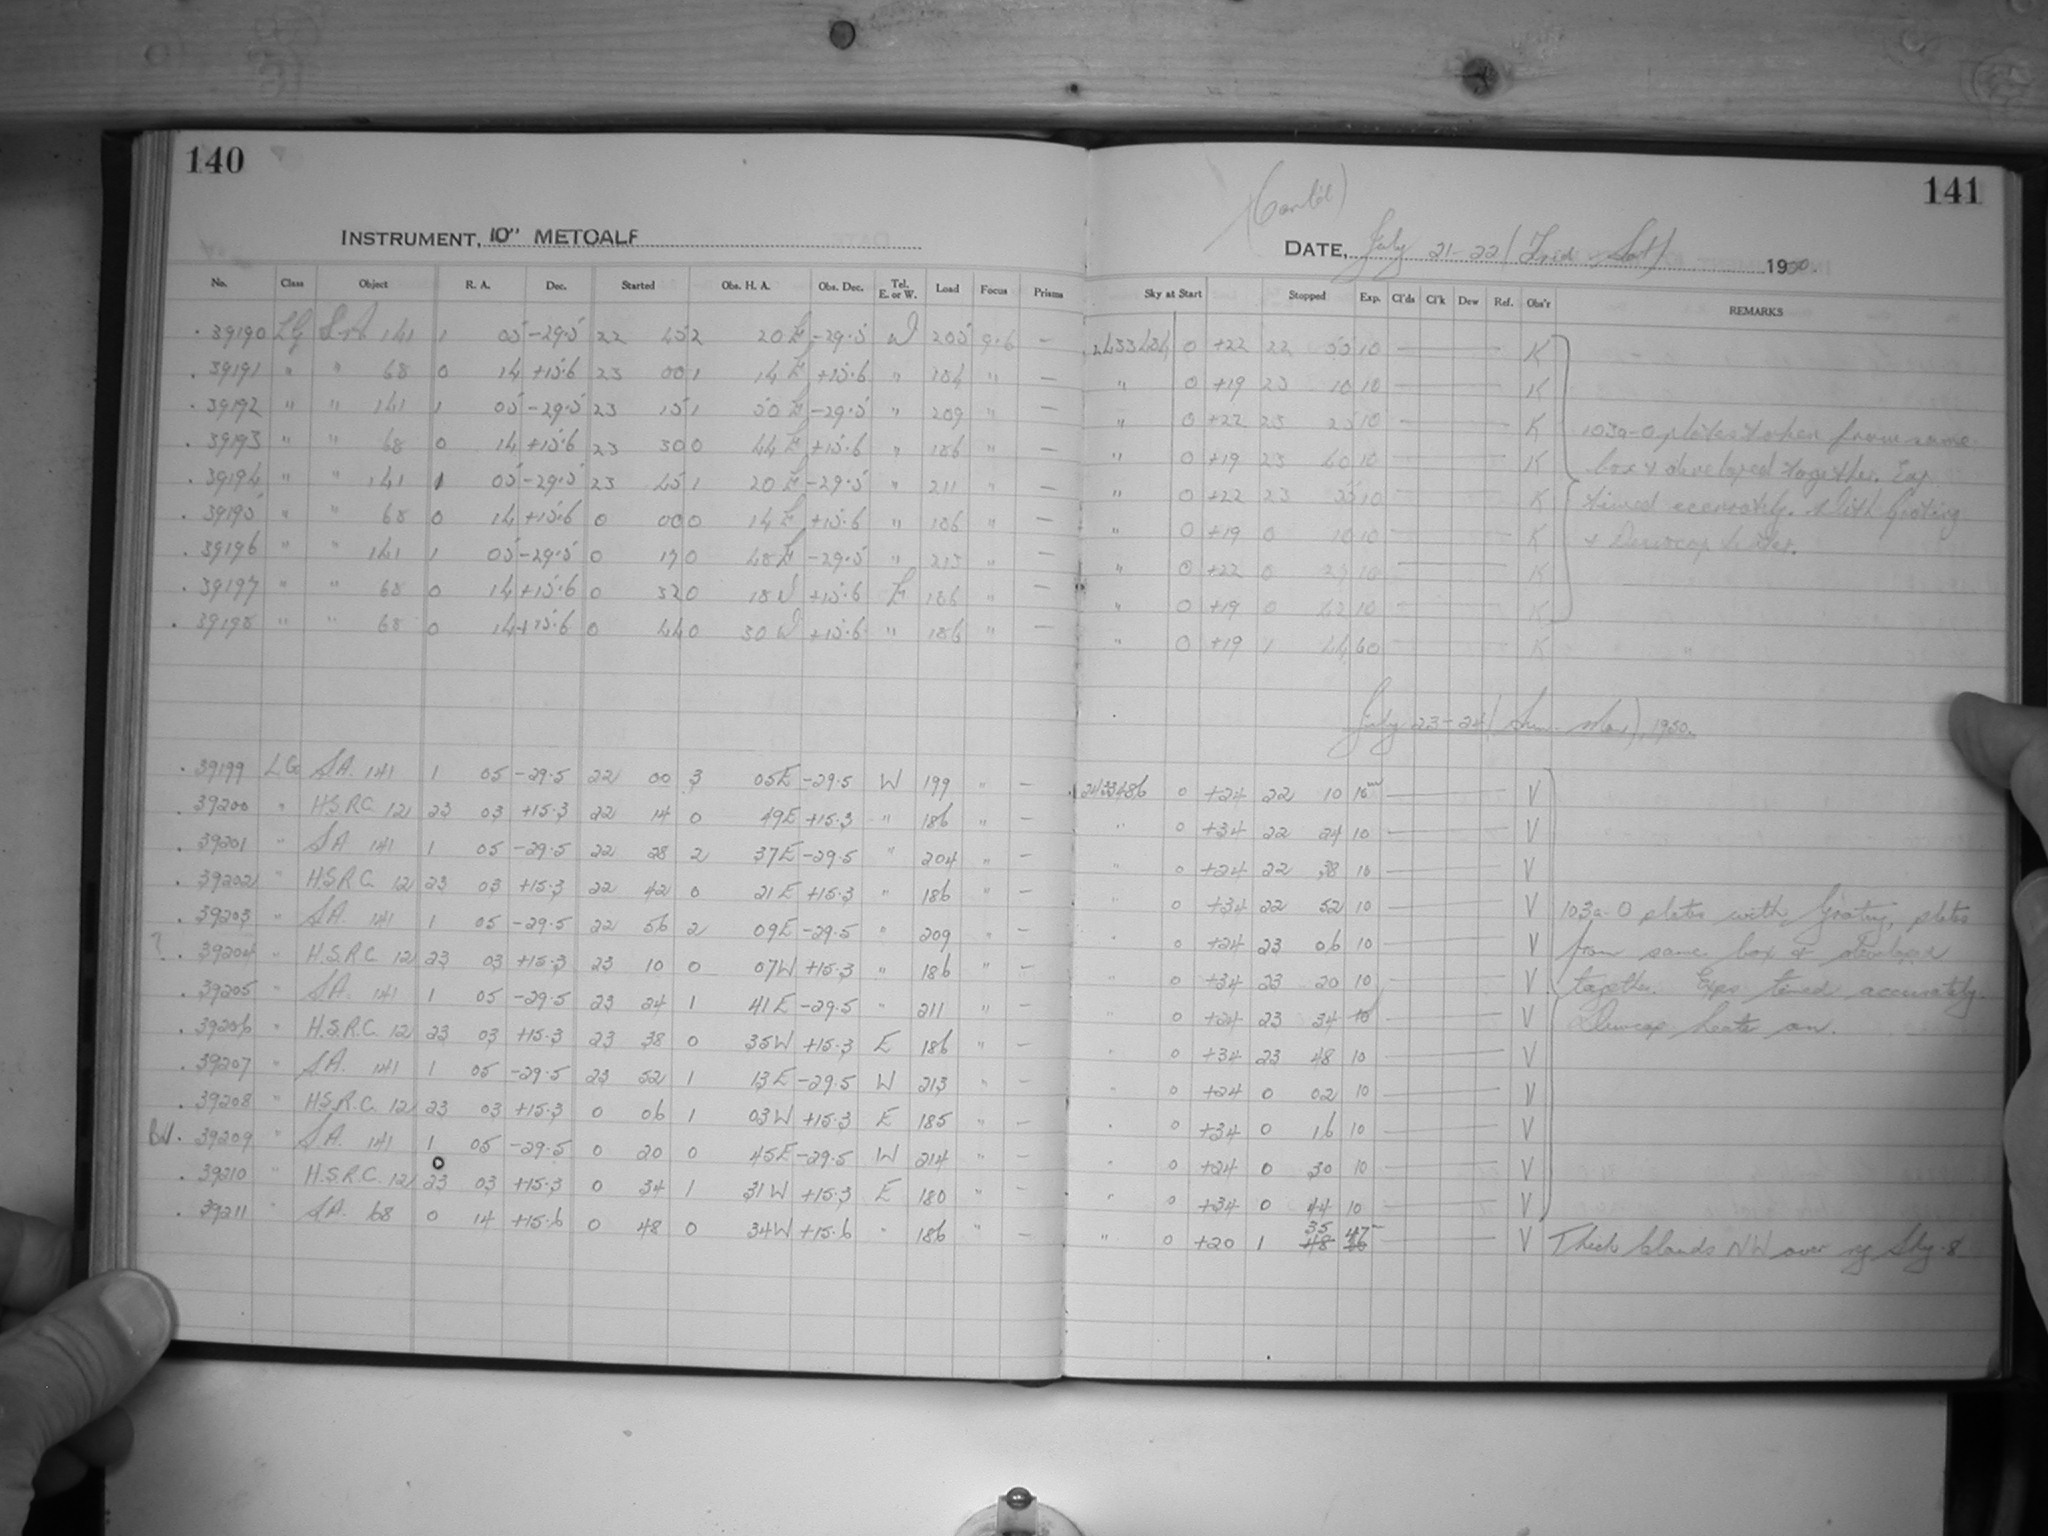 140
INSTRUMENT, 10" METCALF
No. Class Object R. A. Dec. Started Obs. H. A. Obs. Dec. Tel. E. or W. Load Focus Prisms
. 39190 LG S.A 141 1 05 -29.5 22 45 2 20 E -29.5 W 205 9.6 —
. 39191 " " 68 0 14 +15.6 23 00 1 14 E +15.6 " 184 " —
. 39192 " " 141 1 05 -29.5 23 15 1 50 E -29.5 " 209 " —
. 39193 " " 68 0 14 +15.6 23 30 0 44 E +15.6 " 186 " —
. 39194 " " 141 1 05 -29.5 23 45 1 20 E -29.5 " 211 " —
. 39195 " " 68 0 14 +15.6 0 00 0 14 E +15.6 " 186 " —
. 39196 " " 141 1 05 -29.5 0 17 0 48 E -29.5 " 213 " —
. 39197 " " 68 0 14 +15.6 0 32 0 18 W +15.6 E 186 " —
. 39198 " " 68 0 14 +15.6 0 44 0 30 W +15.6 " 186 " —
. 39199 LG S.A. 141 1 05 -29.5 22 00 3 05E -29.5 W 199 " —
. 39200 " H.S.R.C. 12 23 03 +15.3 22 14 0 49E +15.3 " 186 " —
. 39201 " S.A 141 1 05 -29.5 22 28 2 37E -29.5 " 204 " —
. 39202 " H.S.R.C. 12 23 03 +15.3 22 42 0 21E +15.3 " 186 " —
. 39203 " S.A. 141 1 05 -29.5 22 56 2 09E -29.5 " 209 " —
? . 39204 " H.S.R.C 12 23 03 +15.3 23 10 0 07W +15.3 " 186 " —
. 39205 " S.A. 141 1 05 -29.5 23 24 1 41E -29.5 " 211 " —
. 39206 " H.S.R.C. 12 23 03 +15.3 23 38 0 35W +15.3 E 186 " —
. 39207 " S.A. 141 1 05 -29.5 23 52 1 13E -29.5 W 213 " —
. 39208 " H.S.R.C. 12 23 03 +15.3 0 06 1 03W +15.3 E 185 " —
. 39209 " S.A. 141 1 05 -29.5 0 20 0 45E -29.5 W 214 " —
. 39210 " H.S.R.C. 12 23 03 +15.3 0 34 1 31W +15.3 E 180 " —
. 39211 " S.A. 68 0 14 +15.6 0 48 0 34W +15.6 " 186 " —
141
(Cont'd)
DATE, July 21-22 (Frid - Sat) 1950.
Sky at Start Stopped Exp. Cl'ds Cl'k Dew Ref. Obs'r REMARKS
2433484 0 +22 22 55 10 — K
" 0 +19 23 10 10 — K
" 0 +22 23 25 10 — K 103a-O plates taken from same
" 0 +19 23 40 10 — K box & developed together. Exp.
" 0 +22 23 55 10 — K timed accurately. With Grating
" 0 +19 0 10 10 — K & Dewcap heater.
" 0 +22 0 27 10 — K
" 0 +19 0 42 10 — K
" 0 +19 1 44 60 — K "
July 23-24 (Sun - Mon), 1950.
2433486 0 +24 22 10 10m — V
" 0 +34 22 24 10 — V
" 0 +24 22 38 10 — V
" 0 +34 22 52 10 — V 103a-O plates with Grating, plates
" 0 +24 23 06 10 — V from same box & developed
" 0 +34 23 20 10 — V together. Exps timed accurately.
" 0 +24 23 34 10 — V Dewcap heate on.
" 0 +34 23 48 10 — V
" 0 +24 0 02 10 — V
" 0 +34 0 16 10 — V
" 0 +24 0 30 10 — V
" 0 +34 0 44 10 — V
" 0 +20 1 35 47 — V Thick Clouds NW over Sky-8